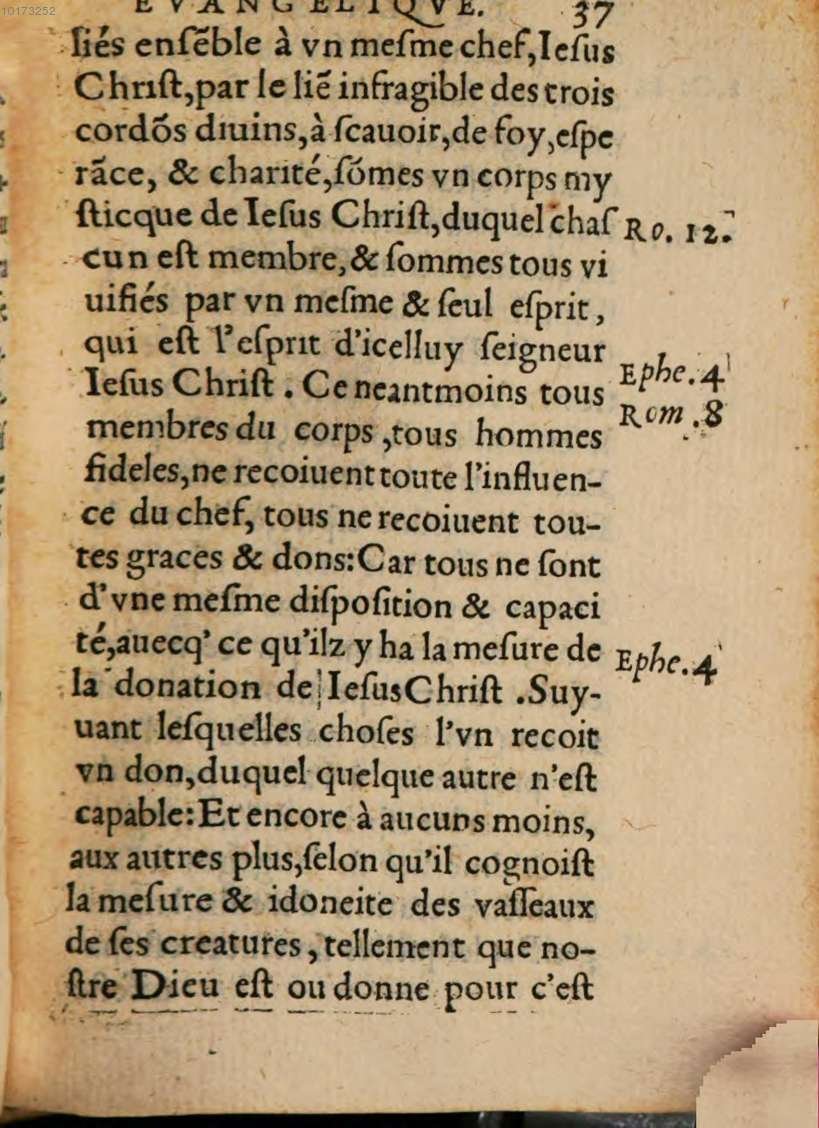 10173252
EVANGELIQVE. 37
liés enſẽble à vn meſme chef, Ieſus
Chriſt, par le liẽ infragible des trois
cordõs diuins, à ſcauoir, de foy, eſpe
rãce, & charité, ſõmes vn corps my
ſticque de Ieſus Chriſt, duquel chaſ Ro. 12.
cun eſt membre, & ſommes tous vi
uifiés par vn meſme & ſeul eſprit,
qui eſt l'eſprit d'icelluy ſeigneur
Ieſus Chriſt. Ce neantmoins tous Ephe. 4
membres du corps, tous hommes Rom. 8
fideles, ne recoiuent toute l'influen-
ce du chef, tous ne recoiuent tou-
tes graces & dons: Car tous ne ſont
d'vne meſme diſpoſition & capaci
té, auecq' ce qu'ilz y ha la meſure de Ephe. 4
la donation de Ieſus Chriſt. Suy-
uant leſquelles choſes l'vn recoit
vn don, duquel quelque autre n'eſt
capable: Et encore à aucuns moins,
aux autres plus, ſelon qu'il cognoiſt
la meſure & idoneite des vaſſeaux
de ſes creatures, tellement que no-
ſtre Dieu eſt ou donne pour c'eſt